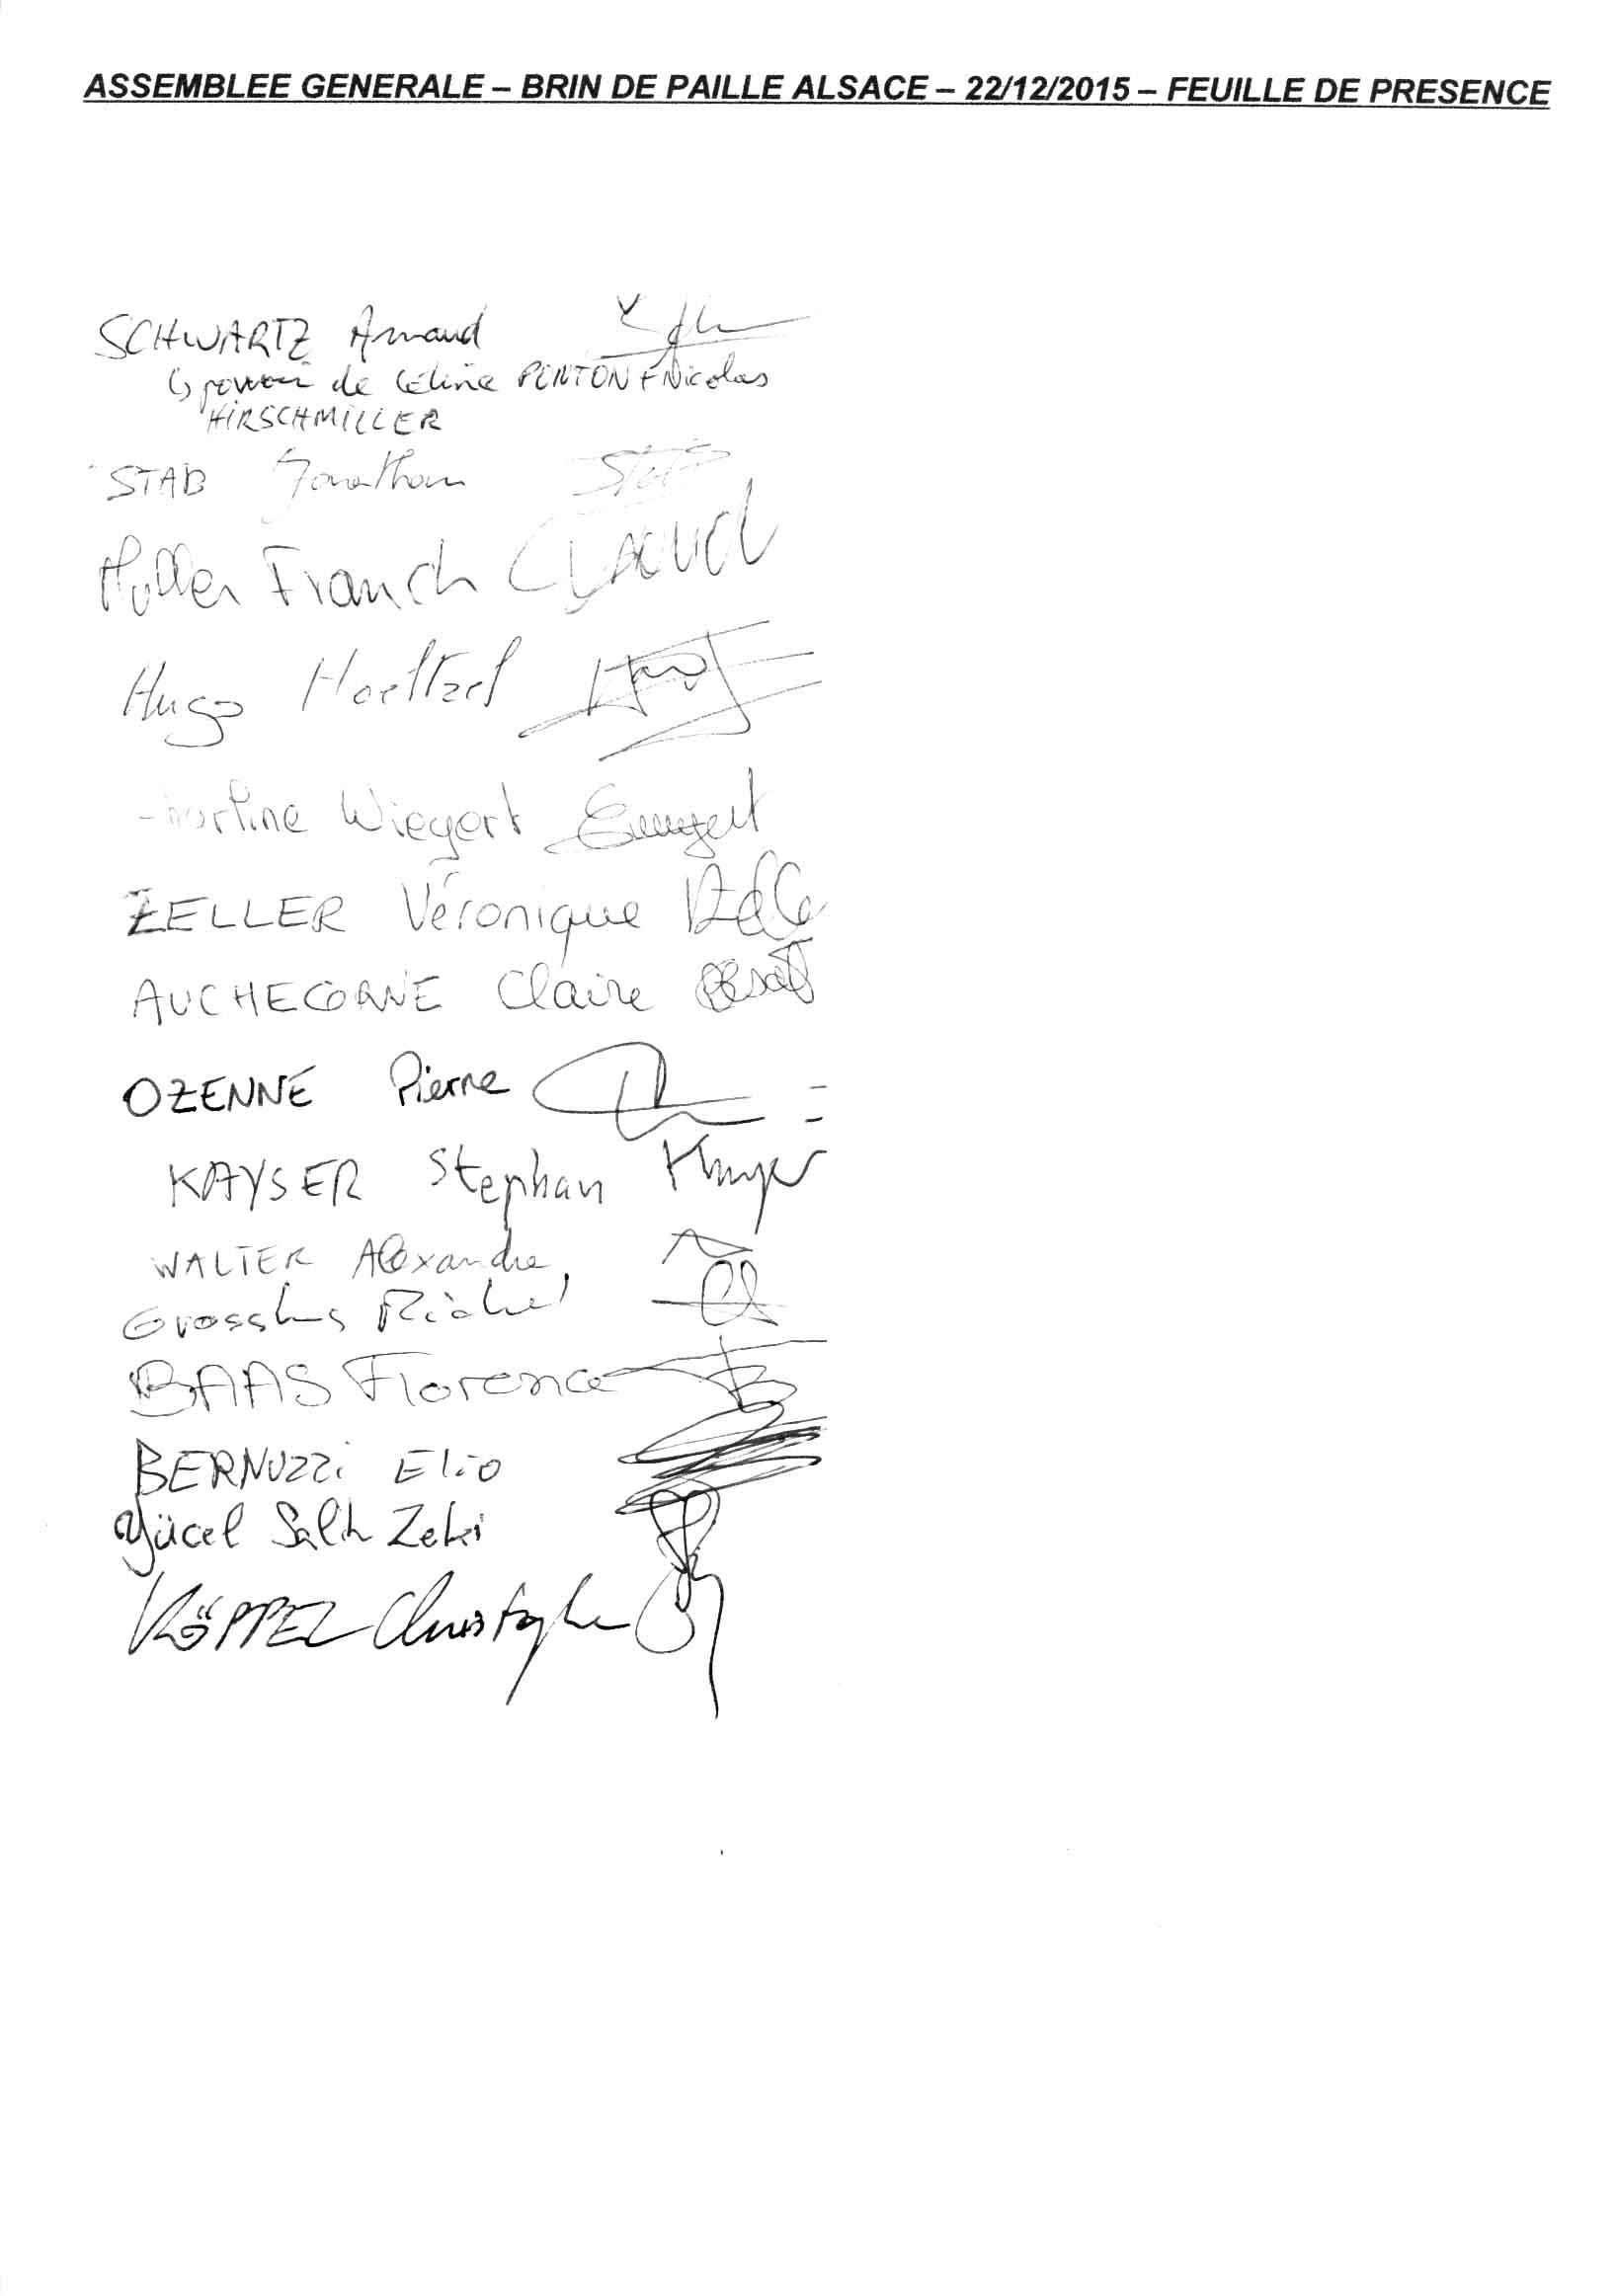 ASSEMBLEE GENERALE – BRIN DE PAILLE ALSACE – 22/12/2015 – FEUILLE DE PRESENCE
SCHWARTZ Arnaud
↳ pouvoir de Céline PONTON & Nicolas
HIRSCHMILLER
STAB Jonathan
Muller Franck
Hugo Hoeltzel
Martine Wiegert
ZELLER Véronique
AUCHECORNE Claire
OZENNE Pierre
KAYSER Stephan
WALTER Alexandre
Michel
BAAS Florence
BERNUZZi Elio
Yücel Salih Zeki
KÖPPEL Christophe